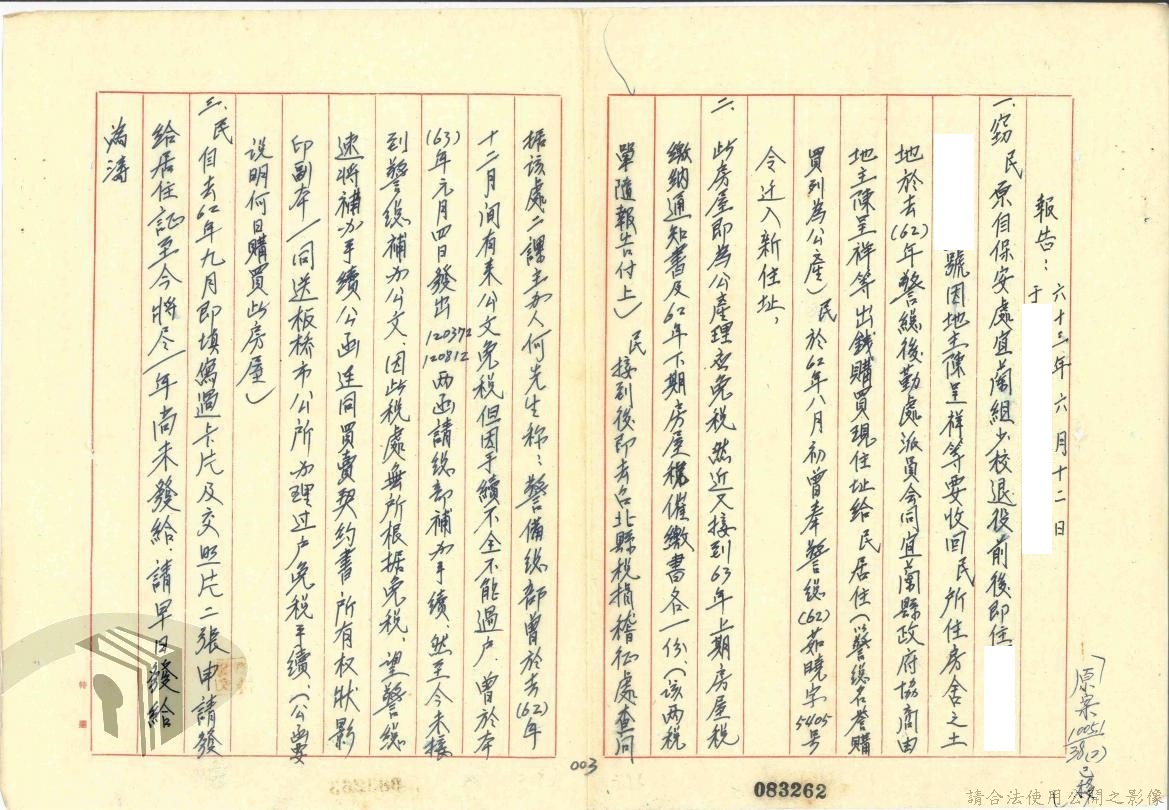 報告：六十三年六月十二日
于
一、竊民原自保安處宜蘭組少校退役前後即住
號因地主陳呈祥等要收回民所住房舍之土
地於去(62)年警總後勤處派員會同宜蘭縣政府協商由
地主陳呈祥等出錢購買現住址給民居住(以警總名譽購
買列為公產)民於62年八月初曾奉警總(62)茹曉字5405号
令迁入新住址，
二、此房屋即為公產理應免税然近又接到63年上期房屋税
繳納通知書及62年下期房屋税催繳書各一份、(該两税
單隨報告付上)民接到後即去台北縣税捐稽征處查问
据該處二課主办人何先生称：警備總部曾於去(62)年
十二月间有来公文免税但因手續不全不能過户、曾於本
(63)年元月四日發出120372 120812两函請總部補办手續、然至今未接
到警總補办公文、因此税處無所根据免税、望警總
速将補办手續公函连同買賣契约書所有权狀影
印副本一同送板桥市公所办理过户免税手續、(公函要
説明何日購買此房屋)
三、民自去62年九月即填寫過卡片及交照片二張申請發
給居住証至今將尽一年尚未發給、請早日發給
為濤
原案10051/38(2)已移
003
083262
特
請合法使用公開之影像